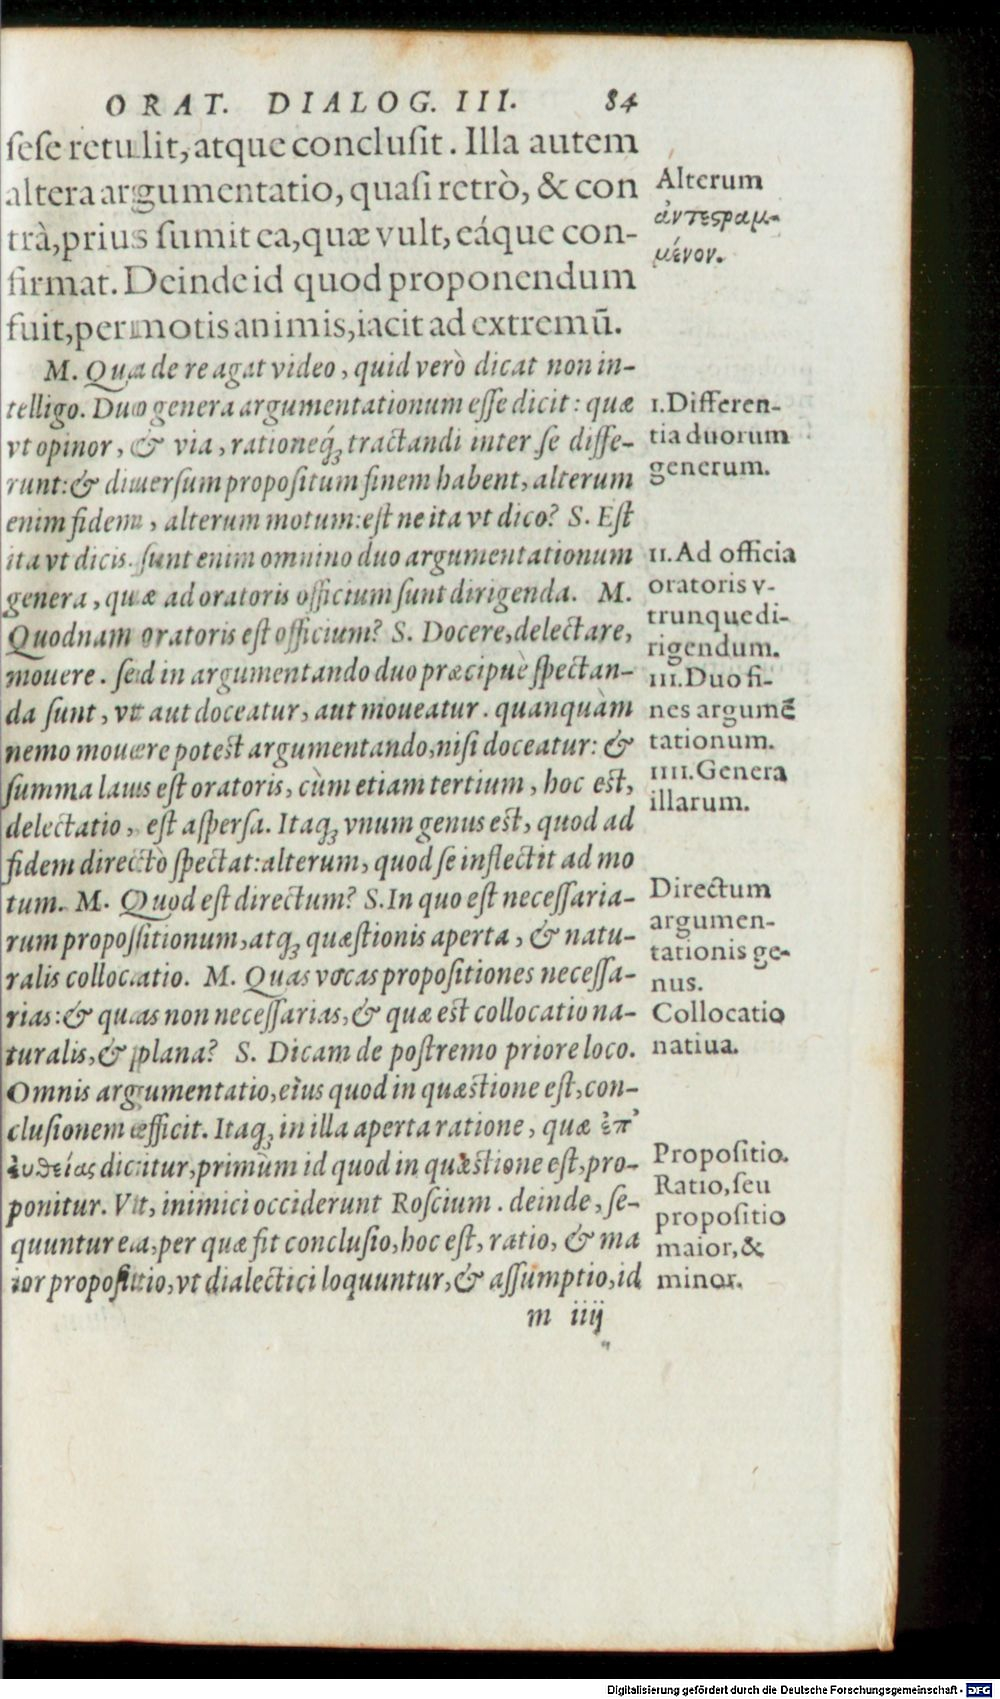 ORAT. DIALOG. III. 84
sese retulit, atque conclusit. Illa autem
altera argumentatio, quasi retrò, & con
trà, prius sumit ea, quæ vult, eáque con-
firmat. Deinde id quod proponendum
fuit, permotis animis, iacit ad extremũ.
M. Qua de re agat video, quid verò dicat non in-
telligo. Duo genera argumentationum esse dicit: quæ
vt opinor, & via, rationeq́; tractandi inter se diffe-
runt: & diuersum propositum finem habent, alterum
enim fidem, alterum motum: est ne ita vt dico? S. Est
ita vt dicis. sunt enim omnino duo argumentationum
genera, quæ ad oratoris officium sunt dirigenda. M.
Quodnam oratoris est officium? S. Docere, delectare,
mouere. sed in argumentando duo præcipuè spectan-
da sunt, vt aut doceatur, aut moueatur. quanquàm
nemo mouere potest argumentando, nisi doceatur: &
summa laus est oratoris, cùm etiam tertium, hoc est,
delectatio, est aspersa. Itaq; vnum genus est, quod ad
fidem directò spectat: alterum, quod se inflectit ad mo
tum. M. Quod est directum? S. In quo est necessaria-
rum propositionum, atq; quæstionis aperta, & natu-
ralis collocatio. M. Quas vocas propositiones necessa-
rias: & quas non necessarias, & quæ est collocatio na-
turalis, & plana? S. Dicam de postremo priore loco.
Omnis argumentatio, eius quod in quæstione est, con-
clusionem efficit. Itaq; in illa aperta ratione, quæ ἐπ'
ἐυθείας dicitur, primùm id quod in quæstione est, pro-
ponitur. Vt, inimici occiderunt Roscium. deinde, se-
quuntur ea, per quæ fit conclusio, hoc est, ratio, & ma
ior propositio, vt dialectici loquuntur, & assumptio, id
m iiij
Alterum
ἀντεςραμ-
μένον.
I. Differen-
tia duorum
generum.
II. Ad officia
oratoris v-
trunque di-
rigendum.
III. Duo fi-
nes argumẽ
tationum.
IIII. Genera
illarum.
Directum
argumen-
tationis ge-
nus.
Collocatio
natiua.
Propositio.
Ratio, seu
propositio
maior, &
minor.
Digitalisierung gefördert durch die Deutsche Forschungsgemeinschaft - DFG